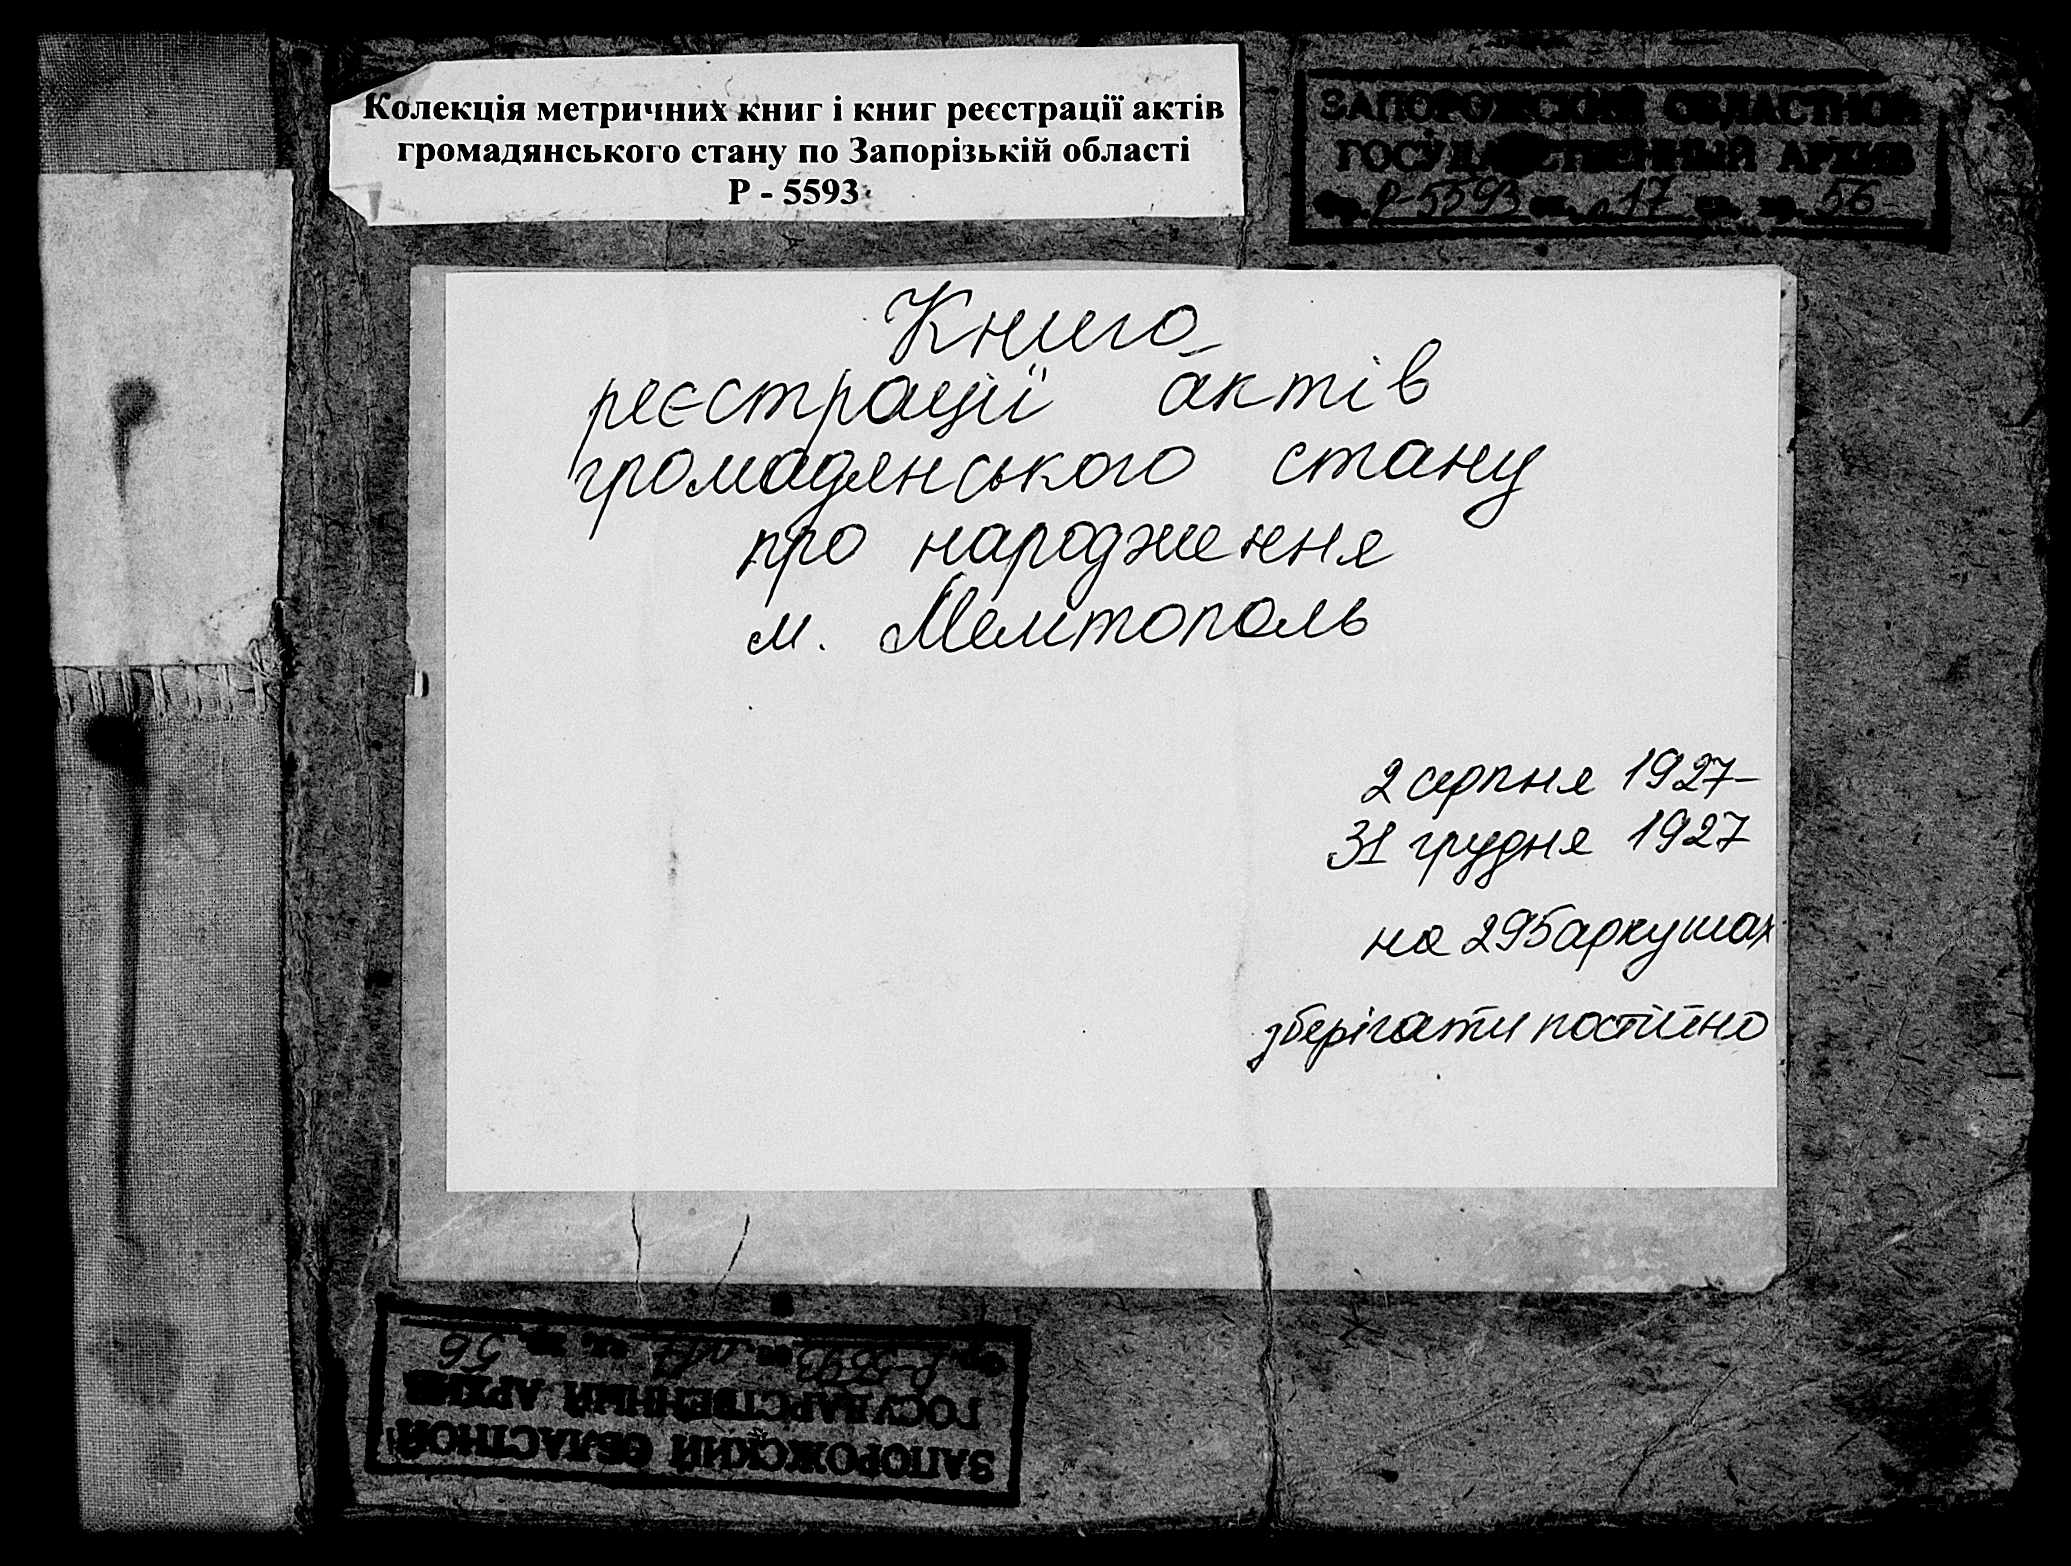 Колекція метричних книг і книг реєстрації актів
громадянського стану по Запорізькій області
Р - 5593
ЗАПОРОЖСКИЙ ОБЛАСТНОЙ
ГОСУДАРСТВЕННЫЙ АРХИВ
Фр. Р-5593 оп. 17 ед. хр. 56
Книга
реєстрації актів
громадянського стану
про народження
м. Мелітополь
2 серпня 1927-
31 грудня 1927
на 295 аркушах
зберігати постійно
ЗАПОРОЖСКИЙ ОБЛАСТНОЙ
ГОСУДАРСТВЕННЫЙ АРХИВ
Р-5593 оп. 17 ед. хр. 56